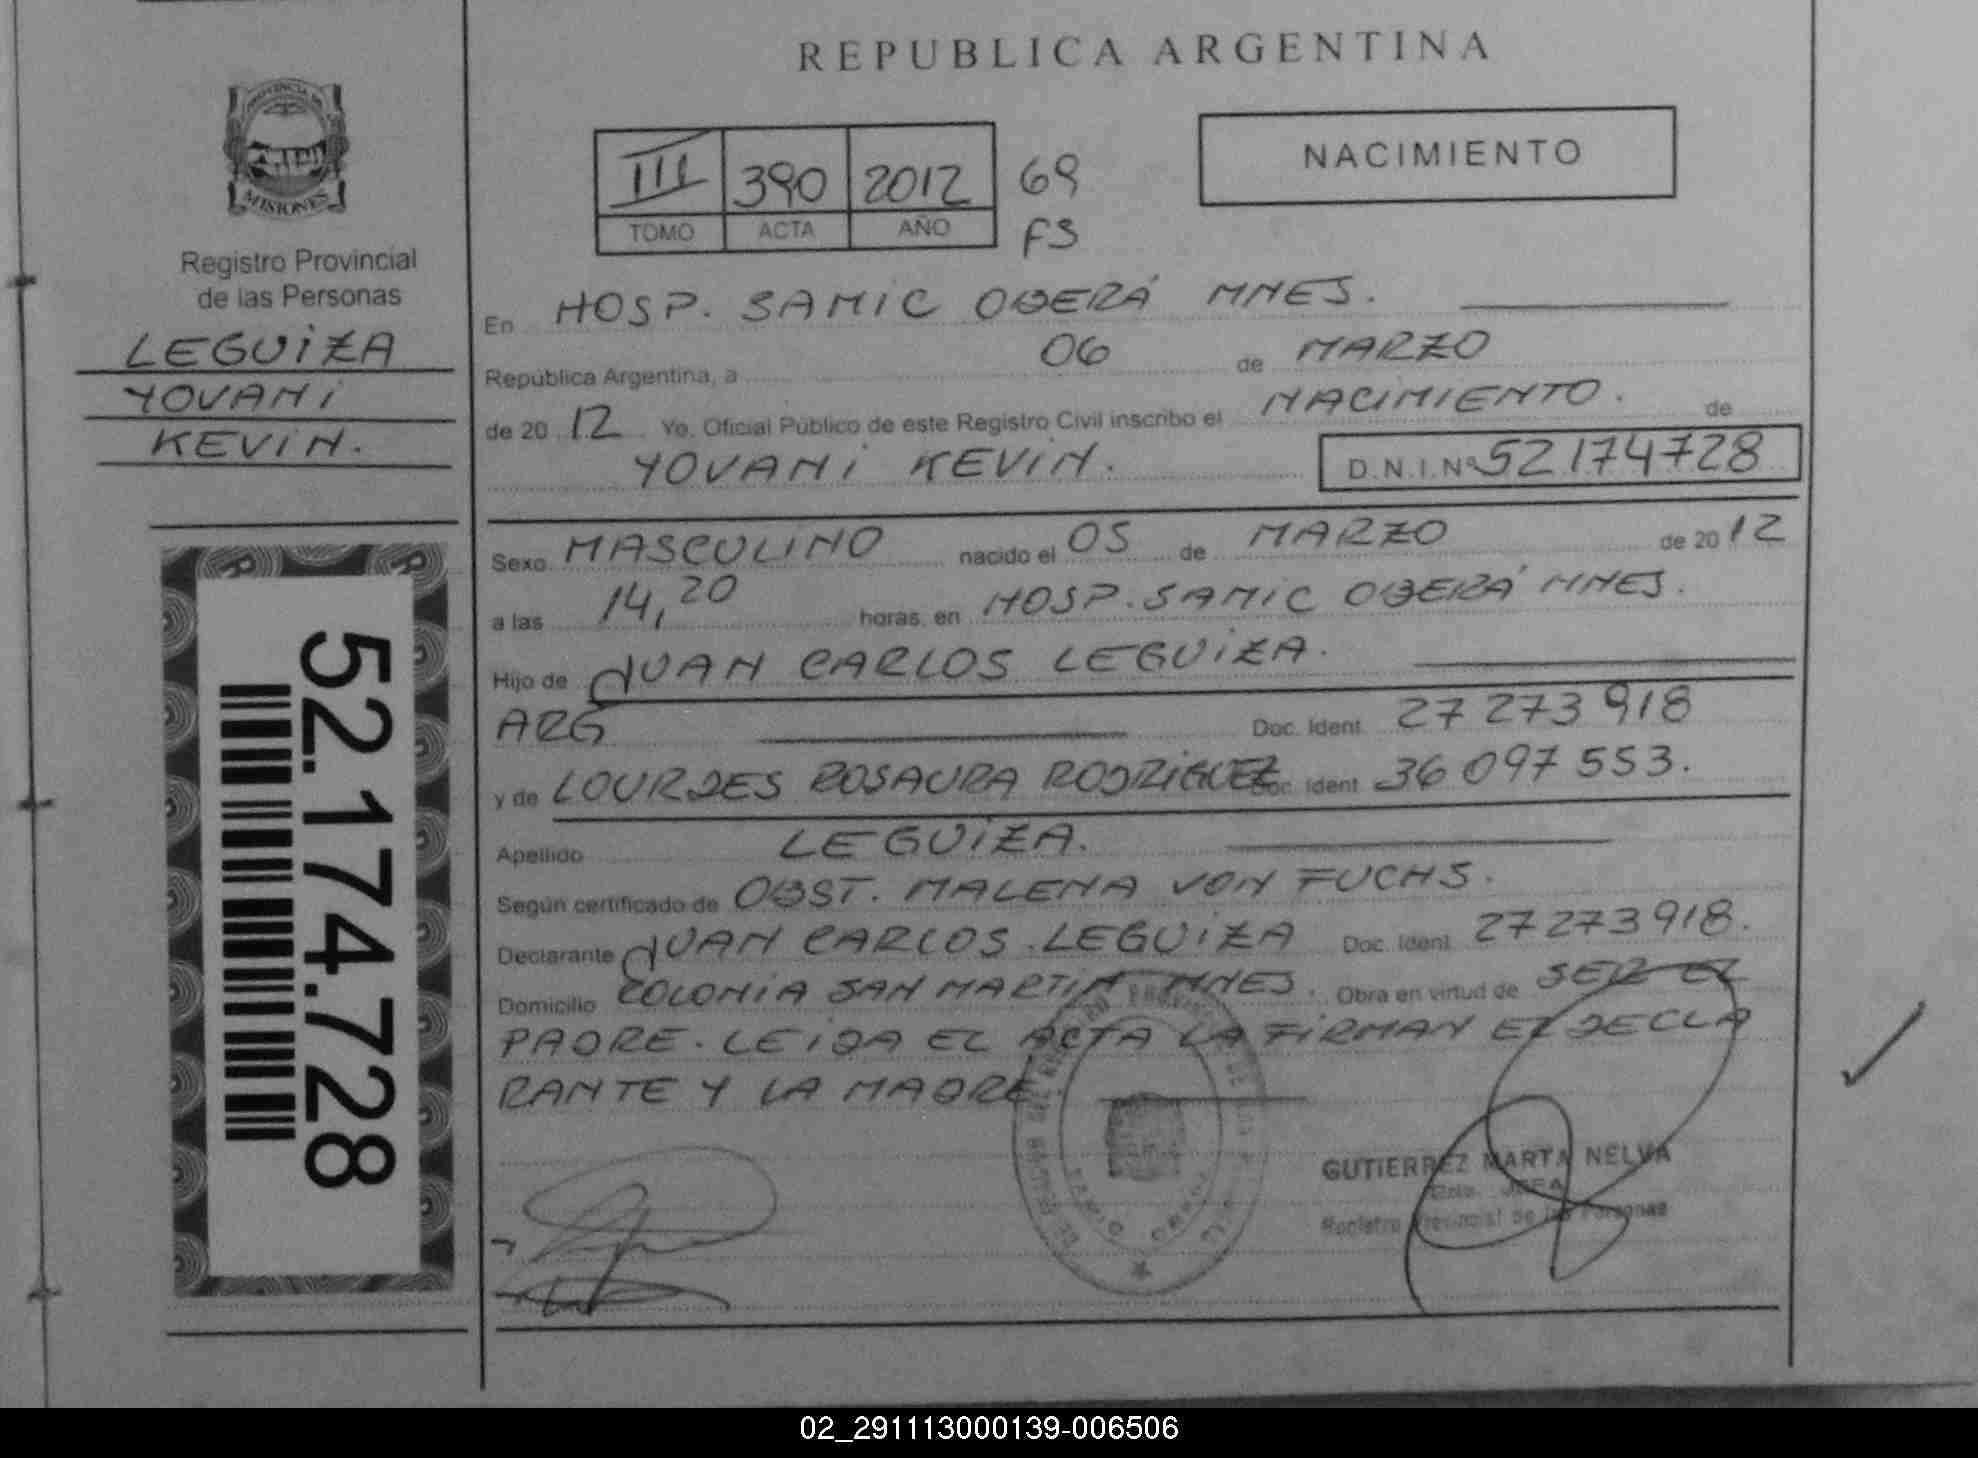 REPUBLICA ARGENTINA
PROVINCIA DE
MISIONES
Registro Provincial
de las Personas
LEGUIZA
YOVANI
KEVIN.
52.174.728
III 390 2012 69
TOMO ACTA AÑO FS
NACIMIENTO
En HOSP. SAMIC OBERÁ MNES.
República Argentina, a 06 de MARZO
de 20 12 Yo, Oficial Público de este Registro Civil inscribo el NACIMIENTO. de
YOVANI KEVIN. D.N.I.Nº 52174728
Sexo MASCULINO nacido el 05 de MARZO de 20 12
a las 14,20 horas, en HOSP. SAMIC OBERÁ MNES.
Hijo de JUAN CARLOS LEGUIZA.
ARG Doc. Ident. 27 273 918
y de LOURDES ROSAURA RODRIGUEZ Doc. Ident. 36 097 553.
Apellido LEGUIZA.
Según certificado de OBST. MALENA VON FUCHS.
Declarante JUAN CARLOS LEGUIZA Doc. Ident. 27273918.
Domicilio COLONIA SAN MARTIN MNES. Obra en virtud de SER EL
PADRE. LEIDA EL ACTA LA FIRMAN EL DECLA
RANTE Y LA MADRE
GUTIERREZ MARTA NELVA
JEFA
Registro Provincial de las Personas
02_291113000139-006506